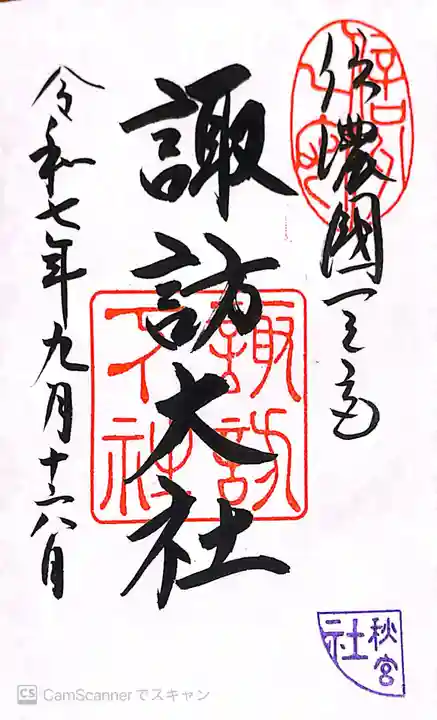 信濃國一之宮
諏訪大社
令和七年九月十六日
諏訪大社
秋宮
社
CS CamScannerでスキャン